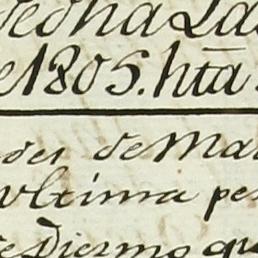 dedha La
e 1805. hta
des de Ma
ultima pe
Diezmo que